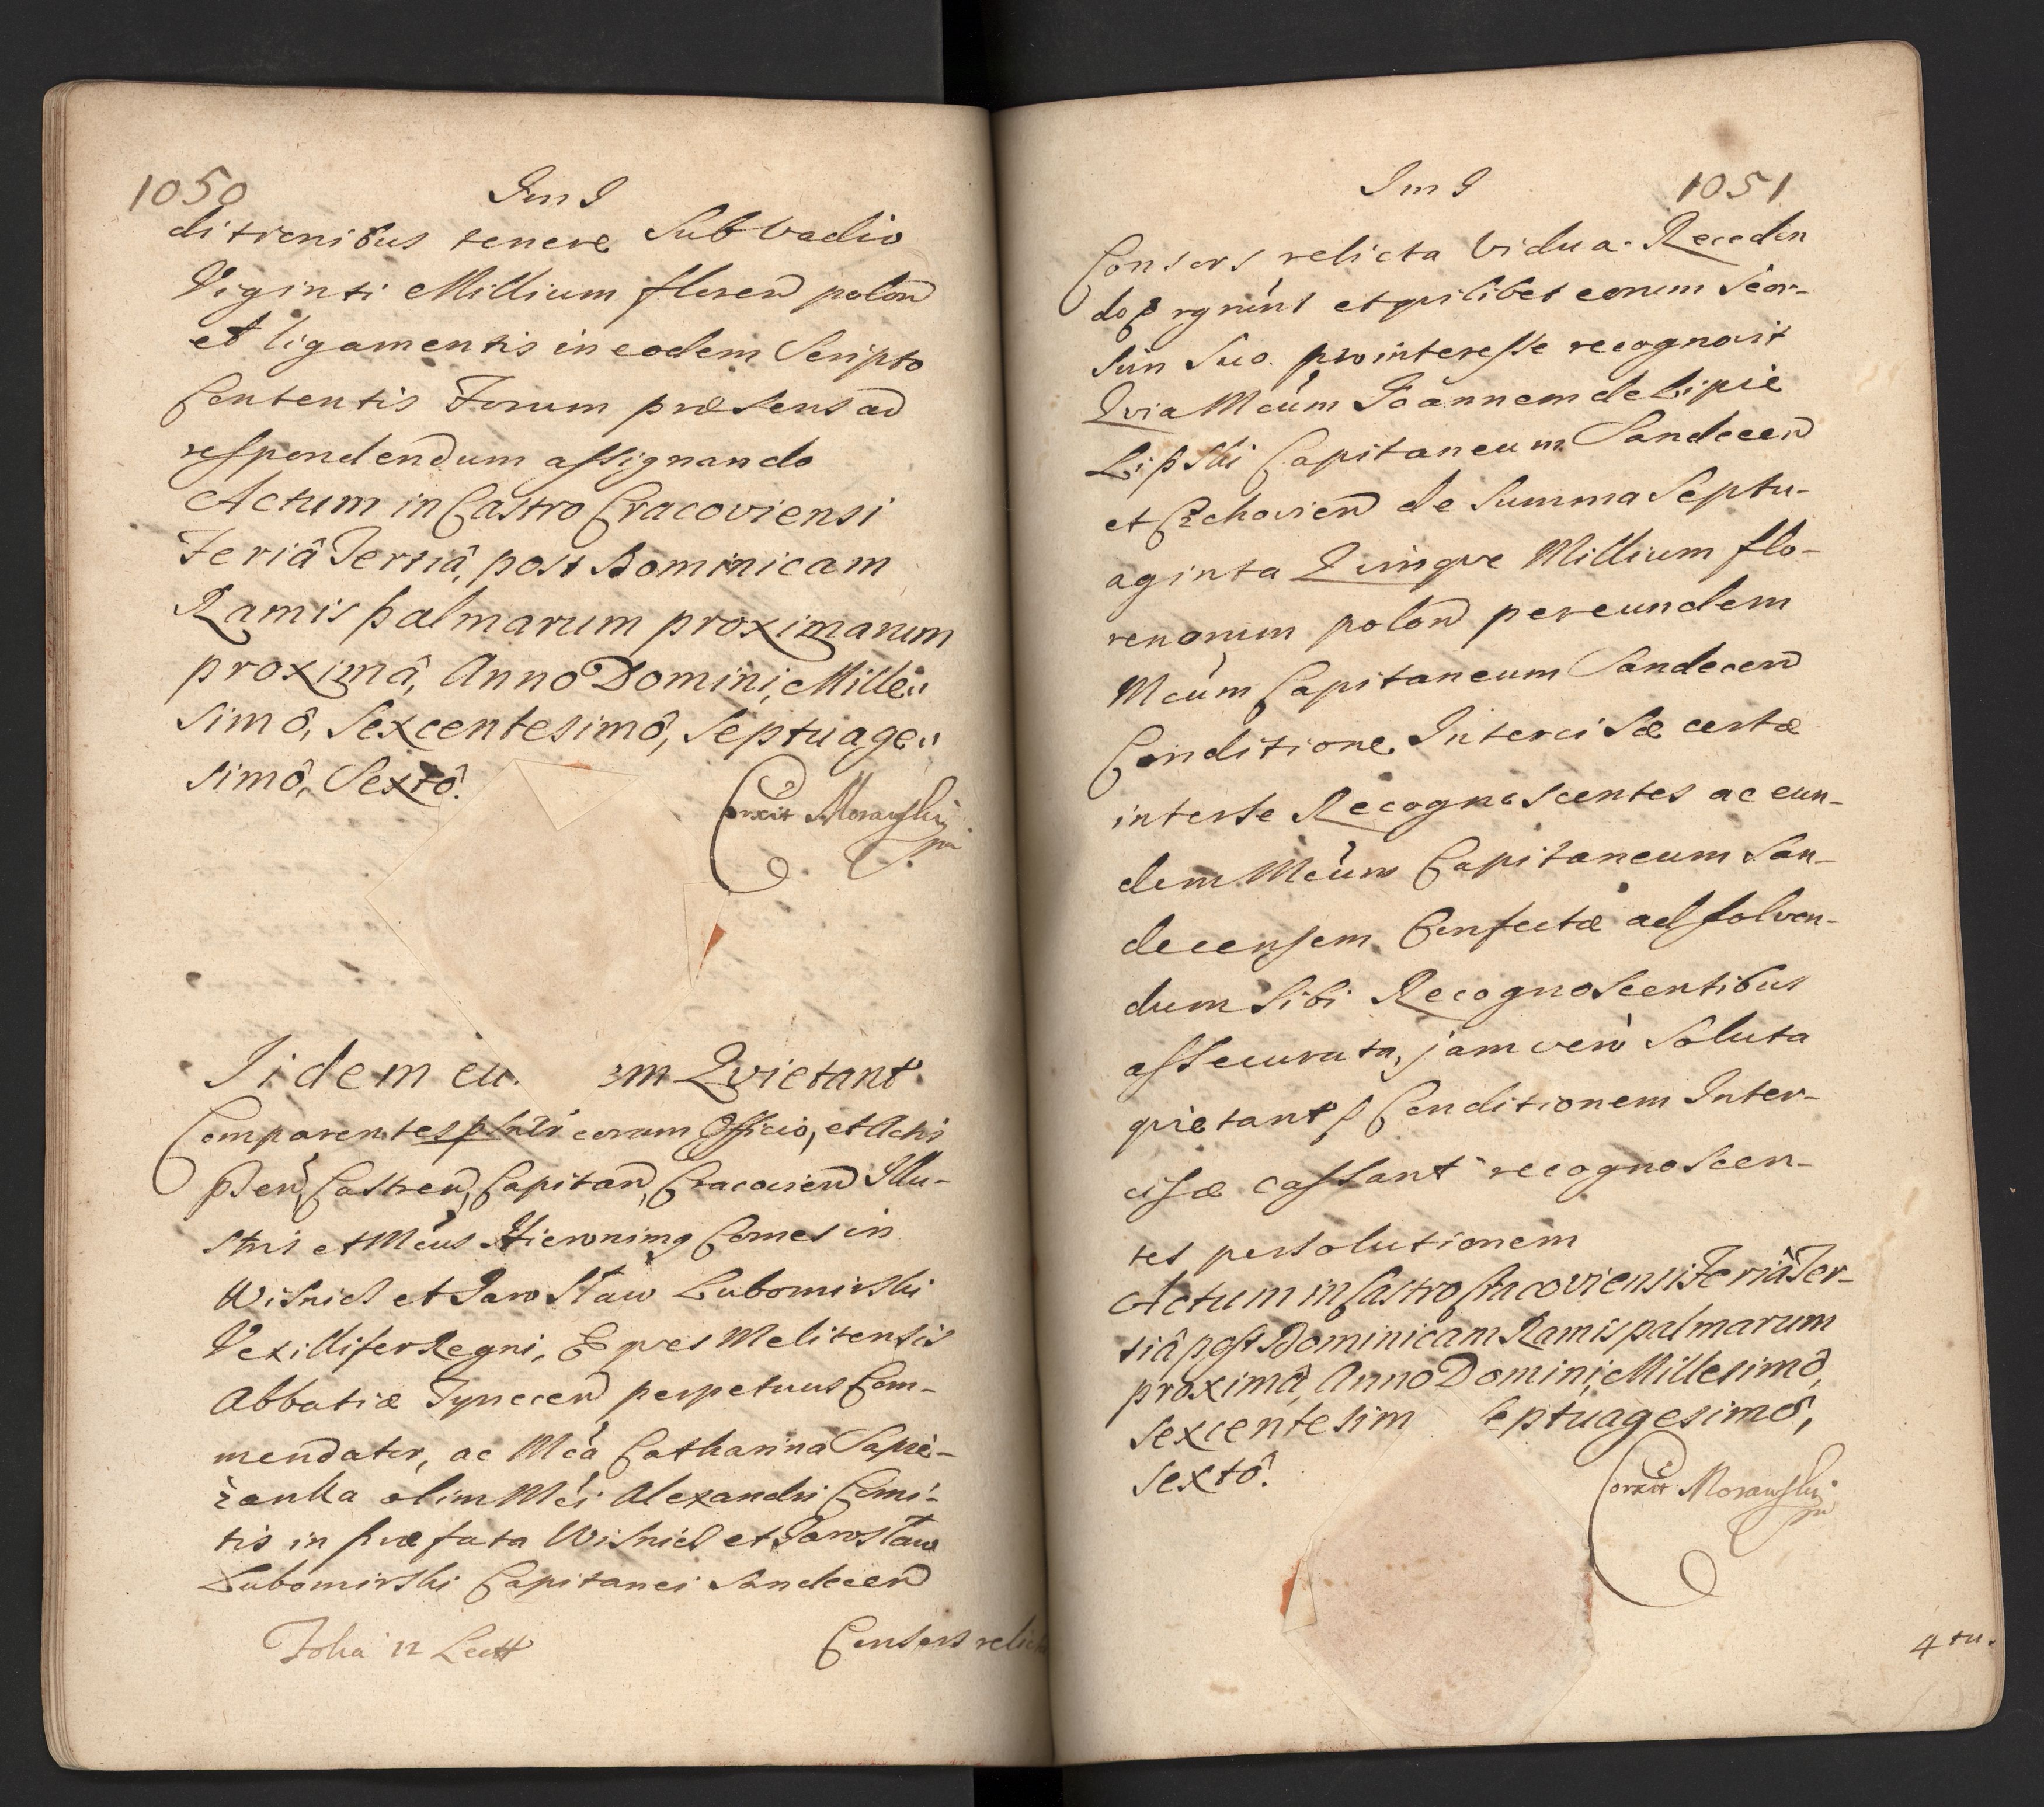 1050
Im J
ditionibus tenere Sub Vadio
Viginti Millium floren polon
et ligamentis in eodem Scripto
Contentis Forum præsens ad
respondendum assignando
Actum in Castro Cracoviensi
Feriâ Tertiâ, post Dominicam
Ramis palmarum proximarum
proximâ, Anno Domini, Mille„
simô, Sexcentesimô, Septuage„
simô, Sextô.
Corexit Morawski
Iidem eu. em Qvietant
Comparentes coram Officio, et Actis
Castren, Capitan, Cracovien Illu-
stris et Mcus Hieronimg Comes in
Wisnicz et Jarosław Lubomirski
Vexillifer Regni, Eqves Melitensis
Abbatiæ Tynecen perpetuus Com-
mendator, ac Mca Catharina Sapie-
żanka olim Mci Alexandri Comi-
tis in præfata Wisnicz et Jarosław
Lubomirski Capitanei Sandecen
Folia 12 Lectt
Consors relicta
Im J
1051
Consors relicta Vidua. Receden
do et qvilibet eorum Seor-
sim Suo pro interesse recognovit
Qvia Mcum Joannem de Lipie
Lipski Capitaneum Sandecen
et Czchovien de Summa Septu-
aginta Qvinqve Millium flo-
renorum polon per eundem
Mcum Capitaneum Sandecen
Conditione Intercisæ certæ
inter se Recognoscentes ac eun-
dem Mcum Capitaneum San-
decensem Confectæ ad solven-
dum Sibi Recognoscentibus
assecurata, jam verò Soluta
qvietant Conditionem Inter-
cisæ cassant recognoscen-
tes persolutionem
Actum in Castro Cracoviensi Feriâ Ter-
tiâ post Dominicam Ramis palmarum
proximâ, Anno Domini, Millesimô,
Sexcentesim eptuagesimô,
Sextô.
Corexit Morawski
4 tu.